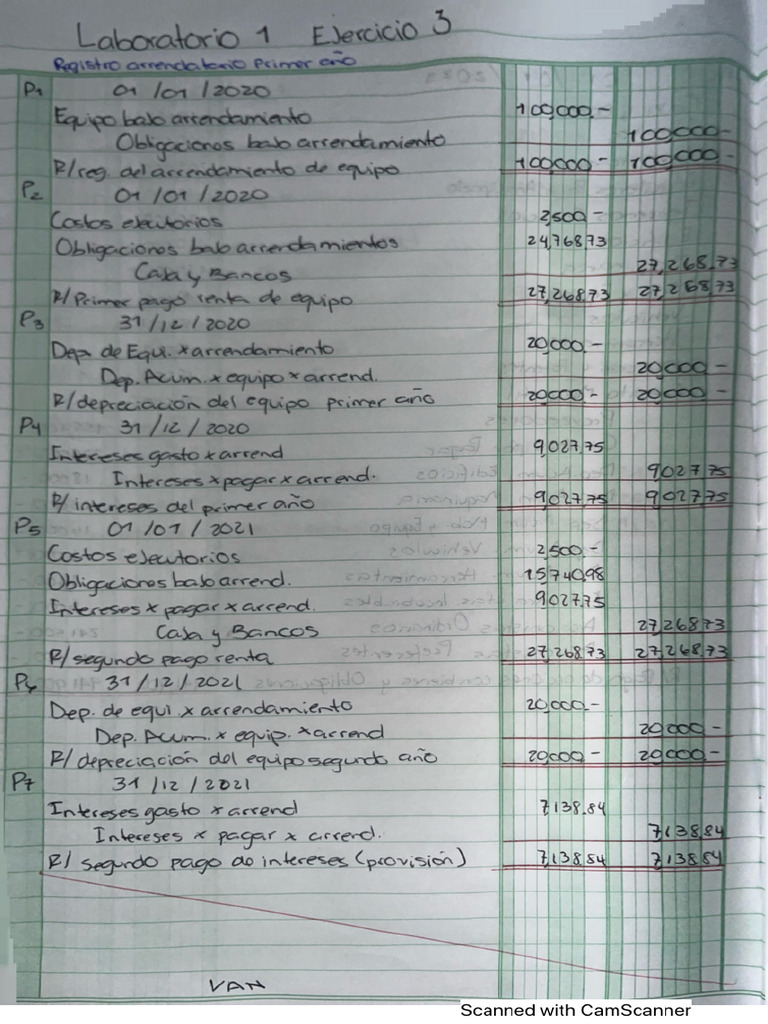 Laboratorio 1 Ejercicio 3
Registro arrendatario Primer año
P1 01 /01 /2020
Equipo bajo arrendamiento 100,000.-
Obligaciones bajo arrendamiento 100,000-
R/reg. del arrendamiento de equipo 100,000- 100,000-
P2 01 /01 /2020
Costos ejecutorios 2,500-
Obligaciones bajo arrendamientos 24,768.73
Caja y Bancos 27,268.73
R/Primer pago renta de equipo 27,268.73 27,268.73
P3 31 /12 /2020
Dep. de Equi. x arrendamiento 20,000.-
Dep. Acum. x equipo x arrend. 20,000-
R/depreciación del equipo primer año 20,000- 20,000-
P4 31 /12 /2020
Intereses gasto x arrend 9,027.75
Intereses x pagar x arrend. 9,027.75
R/ intereses del primer año 9,027.75 9,027.75
P5 01 /01 /2021
Costos ejecutorios 2,500.-
Obligaciones bajo arrend. 15,740.98
Intereses x pagar x arrend. 9,027.75
Caja y Bancos 27,268.73
R/segundo pago renta 27,268.73 27,268.73
P6 31 /12 /2021
Dep. de equi. x arrendamiento 20,000.-
Dep. Acum. x equip. x arrend 20,000-
R/ depreciación del equipo segundo año 20,000- 20,000-
P7 31 /12 /2021
Intereses gasto x arrend 7,138.84
Intereses x pagar x arrend. 7,138.84
R/ segundo pago de intereses (provisión) 7,138.84 7,138.84
VAN
Scanned with CamScanner